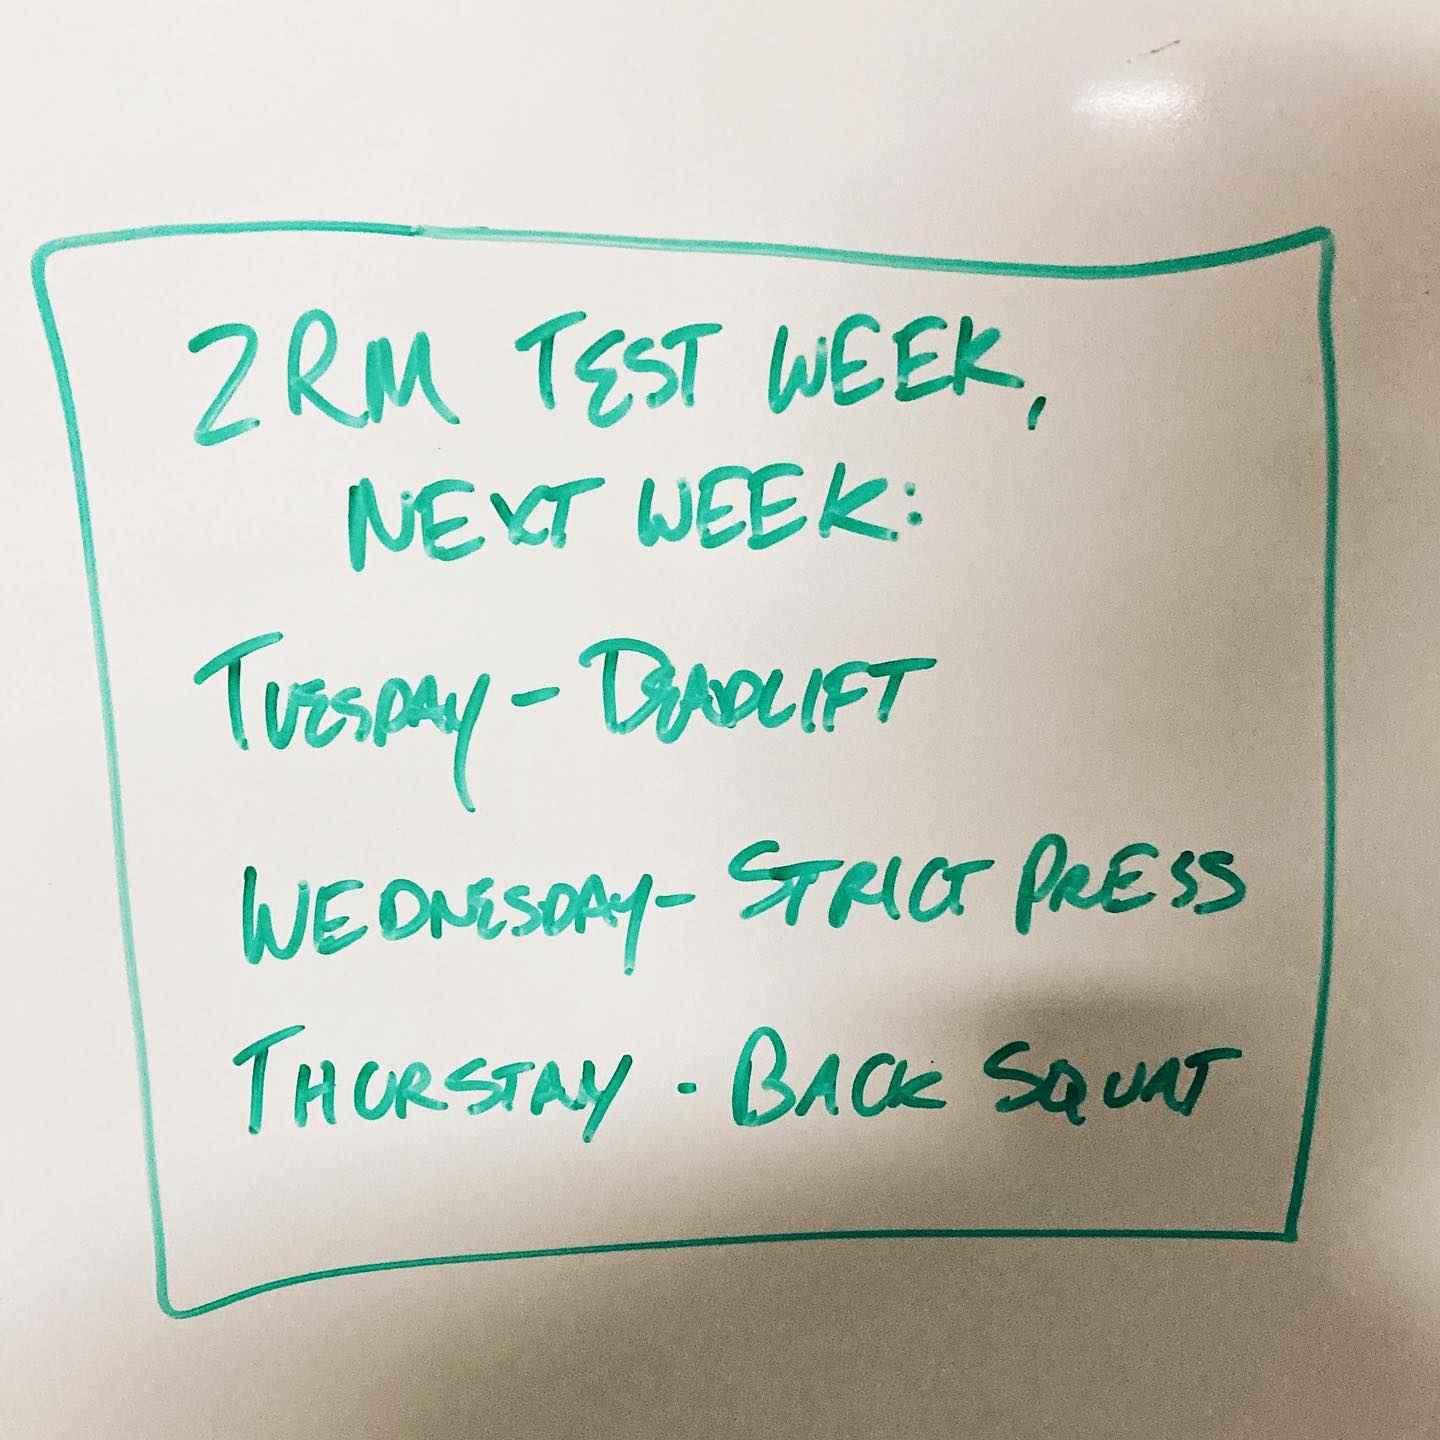 2RM TEST WEEK,
NEXT WEEK:
TUESDAY - DEADLIFT
WEDNESDAY - STRICT PRESS
THURSTAY - BACK SQUAT